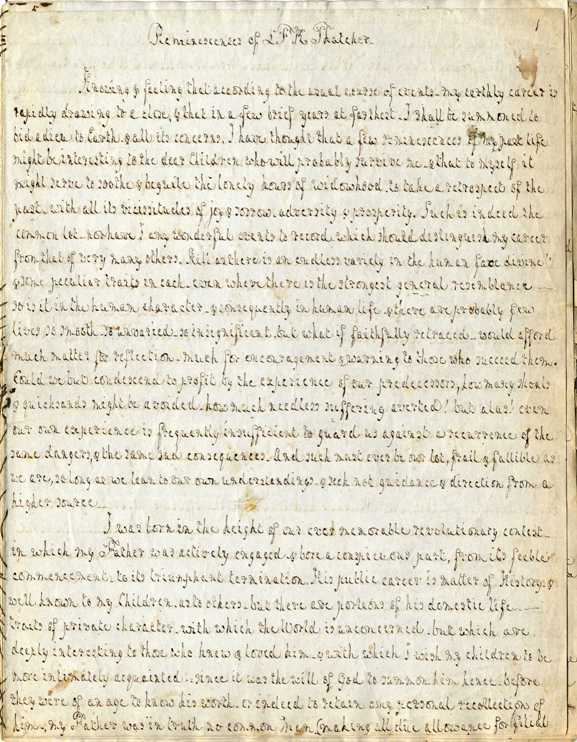 1
Reminescenses of L F K Thatcher
Knowing & feeling that according to the usual course of events my earthly career is
rapidly drawing to a close, & that in a few brief years at farthest I shall be summoned to
bid adieu to Earth & all its concerns, I have thought that a few reminescences of my past life
might be interesting to the dear Children who will probably survive me & that to myself it
might serve to soothe & beguile the lonely hours of widowhood to take a retrospect of the
past, with all its vicissitudes of joy & sorrow, adversity & prosperity. Such is indeed the
common lot nor have I any wonderful events to record, which should distinguish my career
from that of very many others. Still as there is an endless variety in the human face divine
& some peculiar traits in each even where there is the strongest general resemblance
so is it in the human character & consequently in human life & there are probably few
lives so smooth so unvaried so insignificant but what if faithfully retraced would afford
much matter for reflection much for encouragement & warning to those who succeed them.
Could we but condescend to profit by the experience of our predecessors, how many shoals
& quicksands might be avoided how much needless suffering averted! but alas! even
our own experience is frequently insufficient to guard us against a recurrence of the
same dangers, & the same sad consequences. And such must ever be our lot, frail & fallible as
we are, so long as we lean to our own understandings & seek not guidance & direction from a
higher source
I was born in the height of our ever memorable revolutionary contest
in which my Father was actively engaged & bore a conspicuous part, from its feeble
commencement to its triumphant termination. His public career is matter of History &
well known to my Children as to others but there are portions of his domestic life
traits of private character with which the World is unconcerned but which are
deeply interesting to those who knew & loved him & with which I wish my children to be
more intimately acquainted since it was the will of God to summon him hence before
they were of an age to know his worth or indeed to retain any personal recollections of
him, my Father was in truth no common Man (making all due allowance for filial